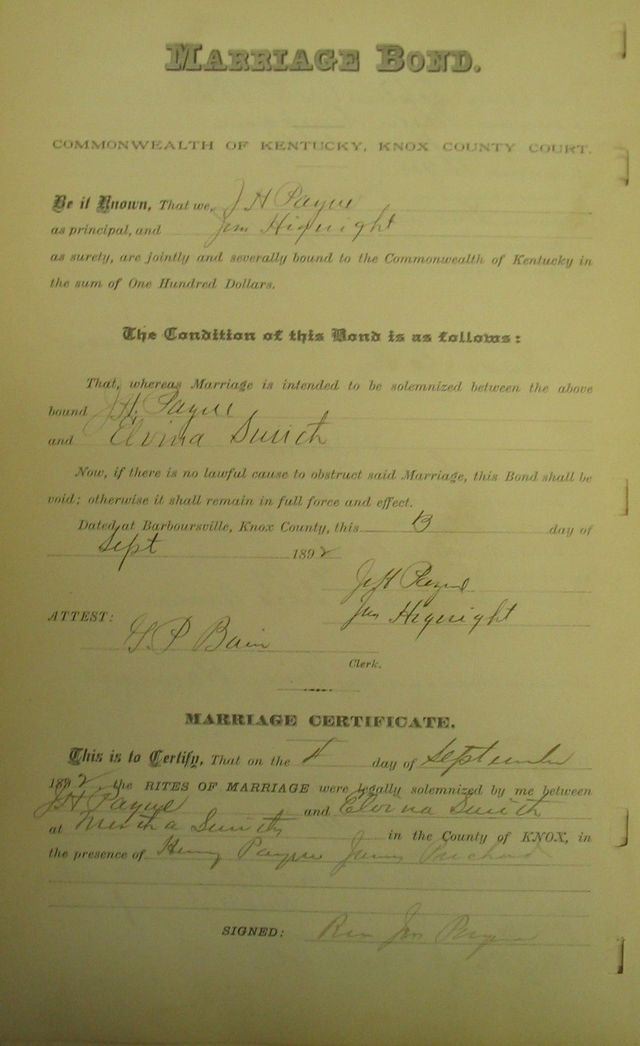 MARRIAGE BOND.
COMMONWEALTH OF KENTUCKY, KNOX COUNTY COURT.
Be it Known, That we, J H Payne
as principal, and Jim Hignight
as surety, are jointly and severally bound to the Commonwealth of Kentucky in
the sum of One Hundred Dollars.
The Condition of this Bond is as follows:
That, whereas Marriage is intended to be solemnized between the above
bound J H Payne
and Elvina Smith
Now, if there is no lawful cause to obstruct said Marriage, this Bond shall be
void; otherwise it shall remain in full force and effect.
Dated at Barboursville, Knox County, this 13 day of
Sept 1892
J H Payne
ATTEST: Jim Hignight
G. P Bain
Clerk.
MARRIAGE CERTIFICATE.
This is to Certify, That on the day of September
1892, the RITES OF MARRIAGE were legally solemnized by me between
J H Payne and Elvina Smith
at Smiths in the County of KNOX, in
the presence of Henry Payne James
SIGNED: Payne